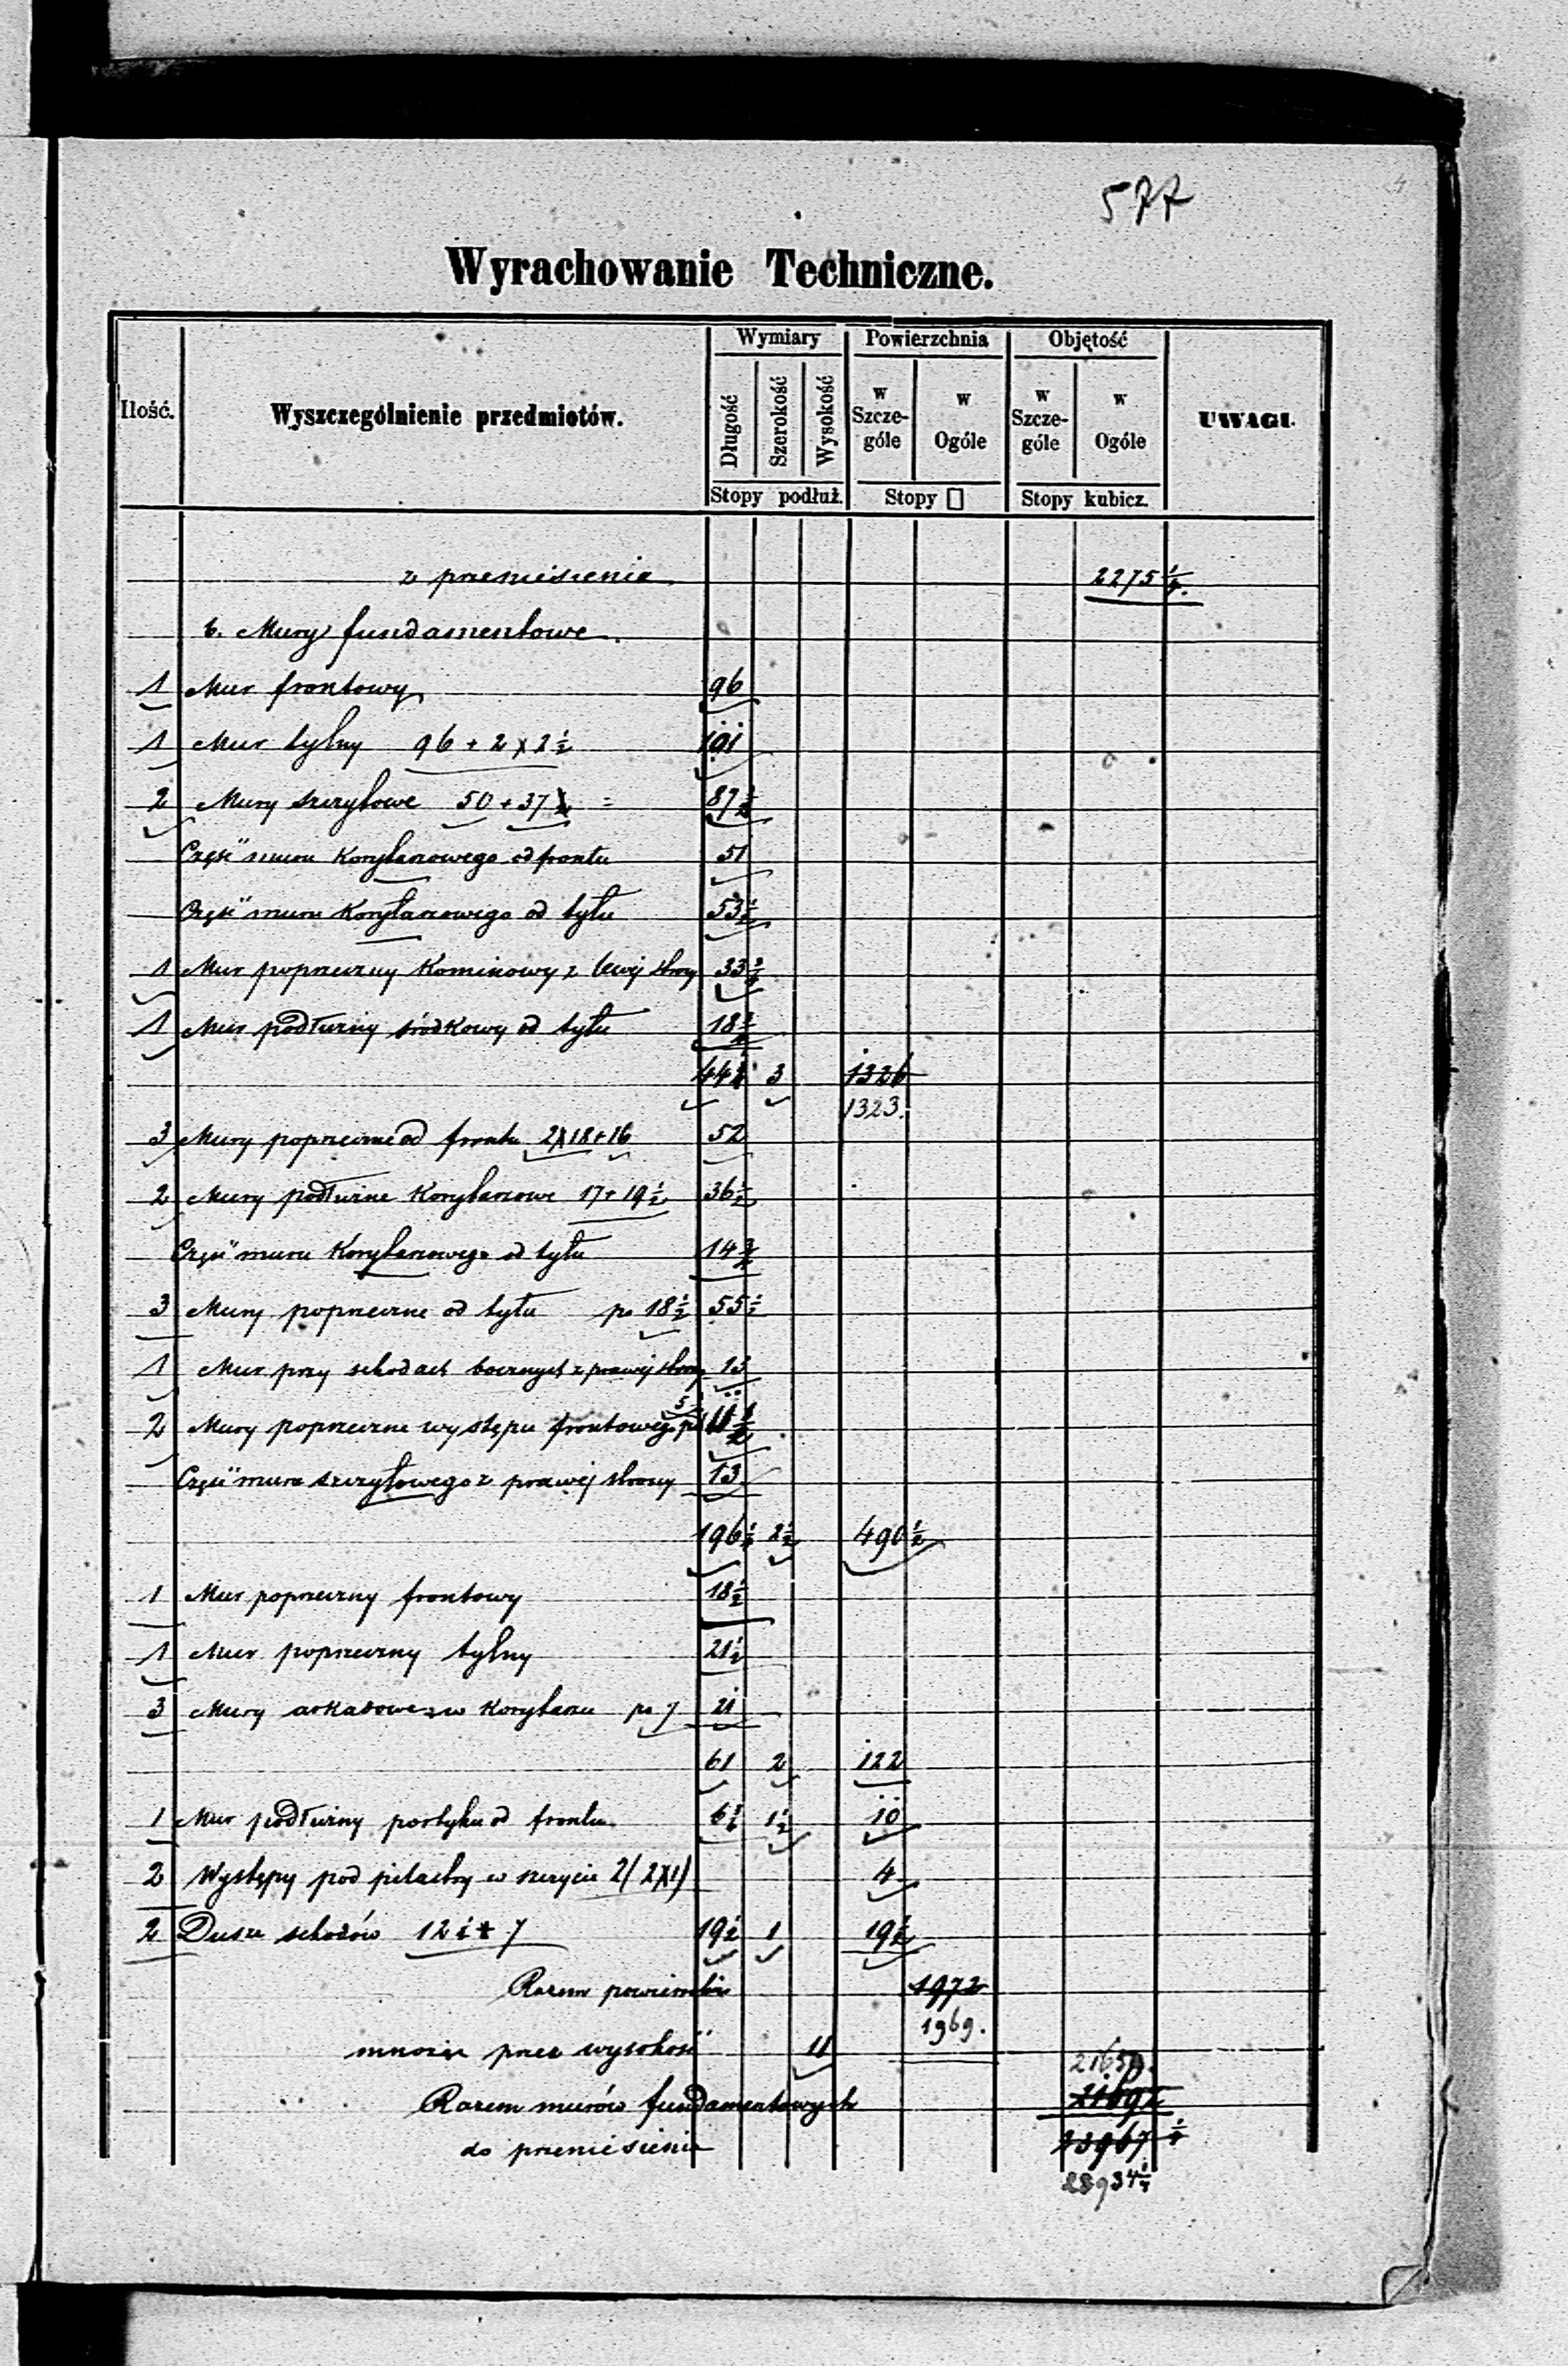 577
Wyrachowanie Techniczne.
Ilość. Wyszczególnienie przedmiotów. Wymiary Powierzchnia Objętość UWAGI.
Długość Szerokość Wysokość w Szcze-góle w Ogóle w Szcze-góle w Ogóle
Stopy podłuż. Stopy □ Stopy kubicz.
z przeniesienia 2275 1/4.
b. Mury fundamentowe
1 Mur frontowy 96
1 Mur tylny 96 + 2 x 2 1/2 101
2 Mury szczytowe 50 + 37 = 87
Część muru Korytarzowego od frontu 51
Część muru Korytarzowego od tyłu 53 1/2
1 Mur poprzeczny Kominowy z lewej strony 33
1 Mur podłużny środkowy od tyłu 18
3 1326
1323.
3 Mury poprzeczne od frontu 2x18+16 52
2 Mury podłużne Korytarzowe 17+19 1/2 36 1/2
Część muru Korytarzowego od tyłu 14
3 Mury poprzeczne od tyłu po 18 1/2 55 1/2
1 Mur przy schodach bocznych z prawej strony 13
2 Mury poprzeczne występu frontowego po 5 11
Część muru szczytowego z prawej strony 13
196 2 1/2 490 1/2
1 Mur poprzeczny frontowy 18 1/2
1 Mur poprzeczny tylny 21 1/2
3 Mury arkadowe w Korytarzu po 7 21
61 2 122
1 Mur podłużny portyku od frontu 6 1/2 1 1/2 10
2 Występy pod pilastry w szczycie 2(2x1) 4
2 Dusze schodów 12 1/2 + 7 19 1/2 1 19 1/2
Razem powierzchni 1972
1969.
mnożąc przez wysokość 11
21659.
Razem murów fundamentowych 21692
do przeniesienia 23967 1/4
23934 1/4